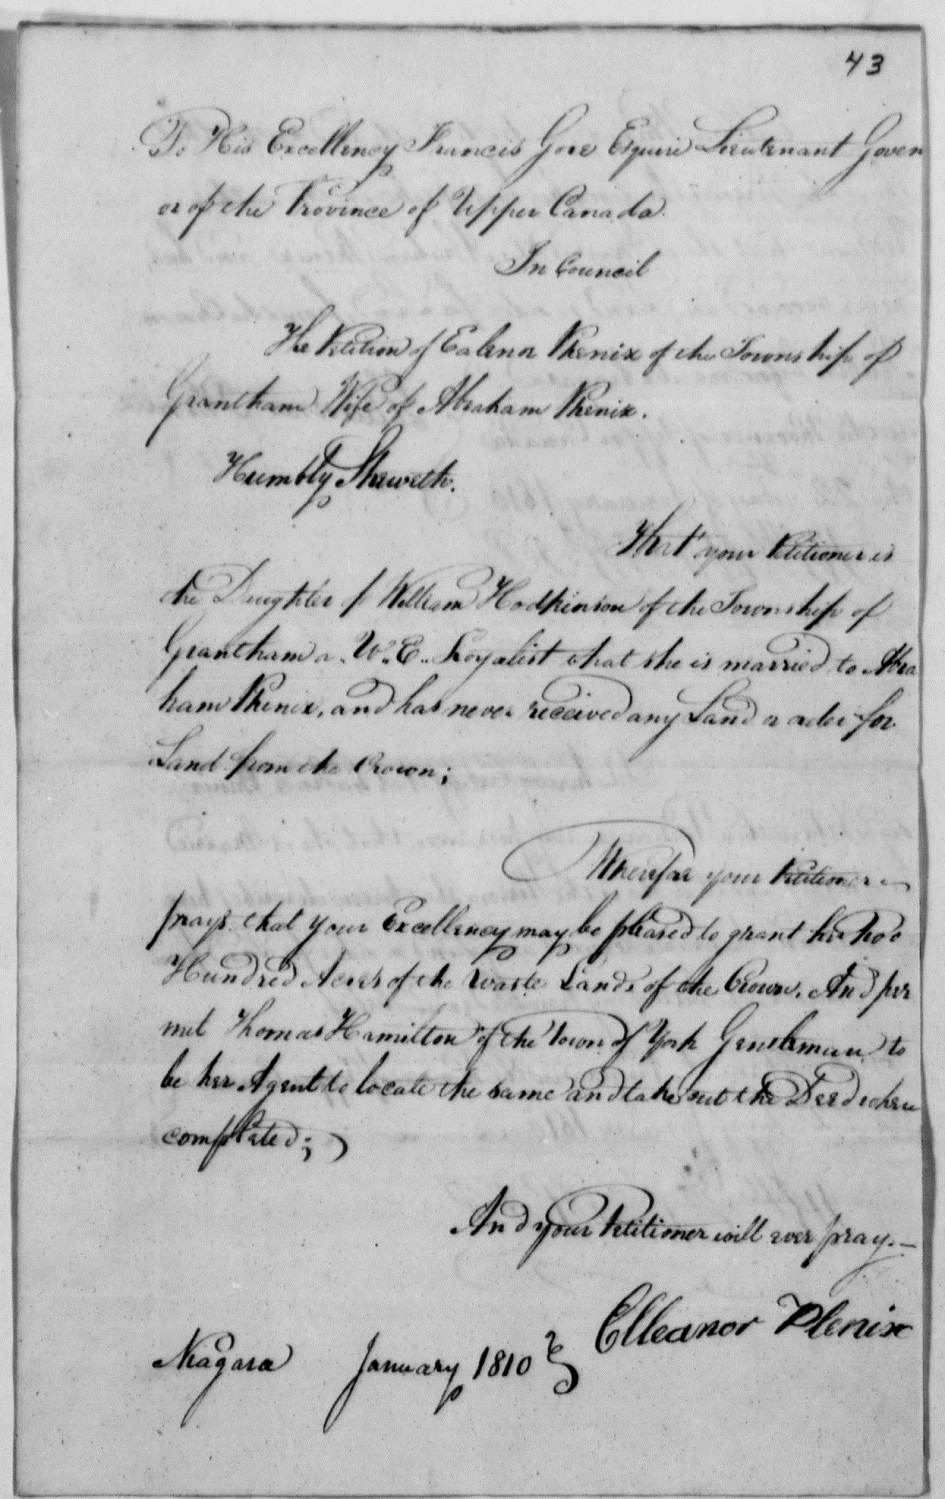 43
To His Excellency Francis Gore Esquire Lieutenant Govern
or of the Province of Upper Canada.
In Council
The Petition of Ealenor Phenix of the Township of
Grantham Wife of Abraham Phenix.
Humbly Sheweth.
That your Petitioner is
the Daughter of William Hodpkinson of the Township of
Grantham a. U. E. Loyalist that she is married to Abra
ham Phenix, and has never received any Land or order for
Land from the Crown;
Wherefor your Petitioner
prays that your Excellency may be pleased to grant her two
Hundred Acres of the Waste Lands of the Crown. And per
mit Thomas Hamilton of the Town of York Gentleman to
be her Agent to locate the same and take out the Deed when
completed;
And your Petitioner will ever pray.—
Elleanor Phenix
Niagara January 1810